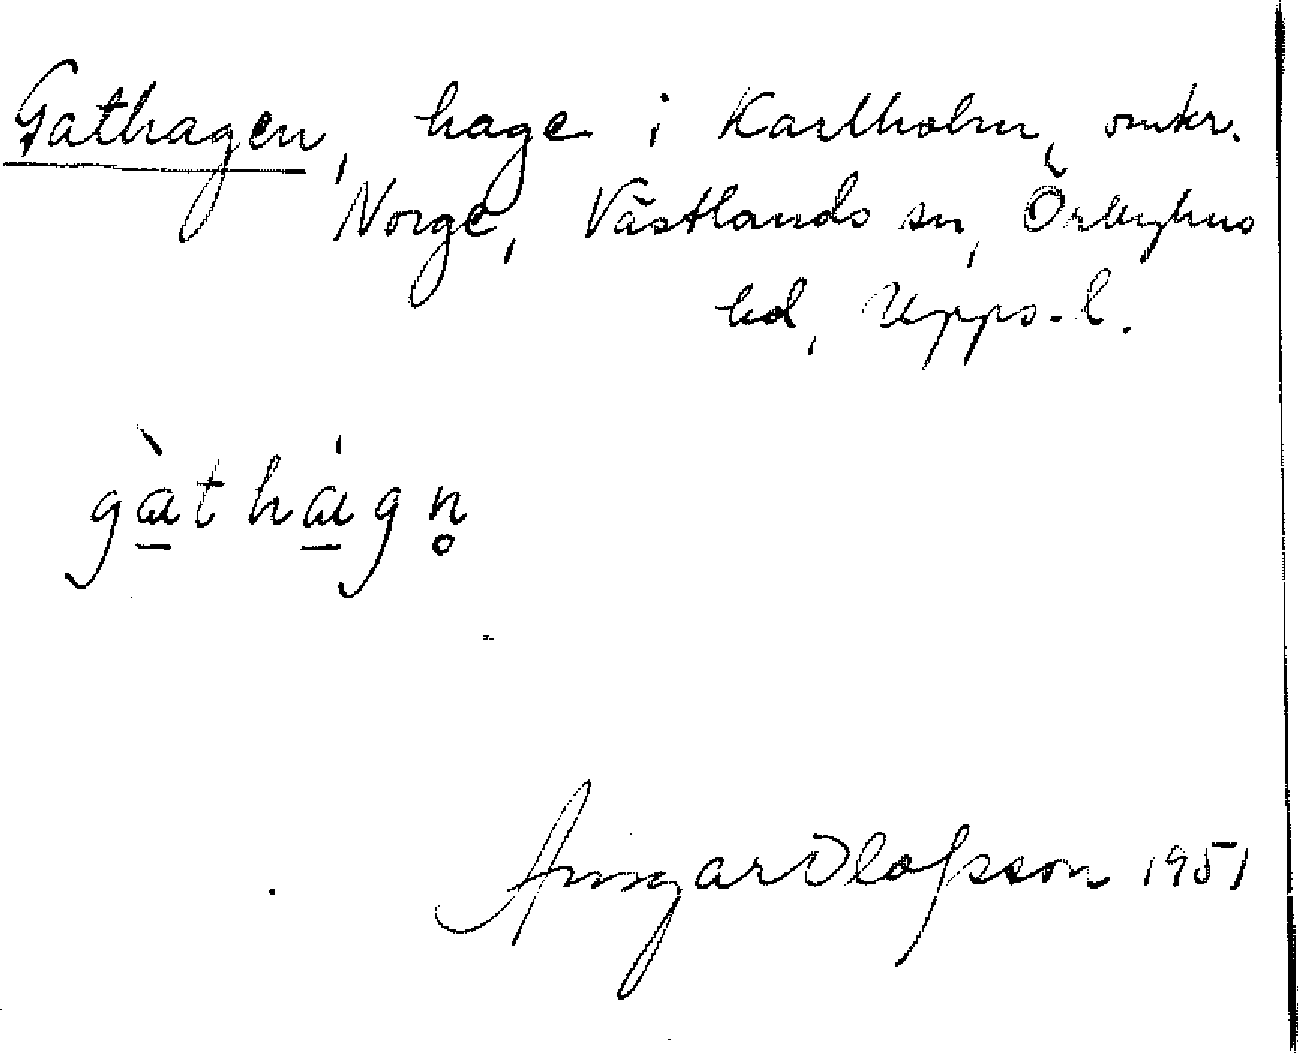 Gathagen, hage i Karlholm, omkr.
Norge, Västlands sn, Örbyhus
hd, Upps. l.
gàt hágn̥
Ansgar Olofsson 1951